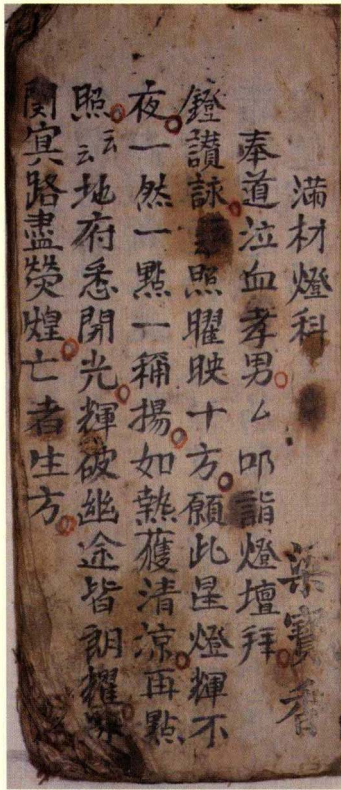 梁寶香
滿材燈科
奉道泣血孝男厶叩詣燈壇拜
鐙讃詠照曜映十方願此星燈輝不
夜一然一點一稱揚如熱獲清涼再點
照云云地府悉開光輝破幽途皆朗耀
関㝠路盡熒煌亡者生方